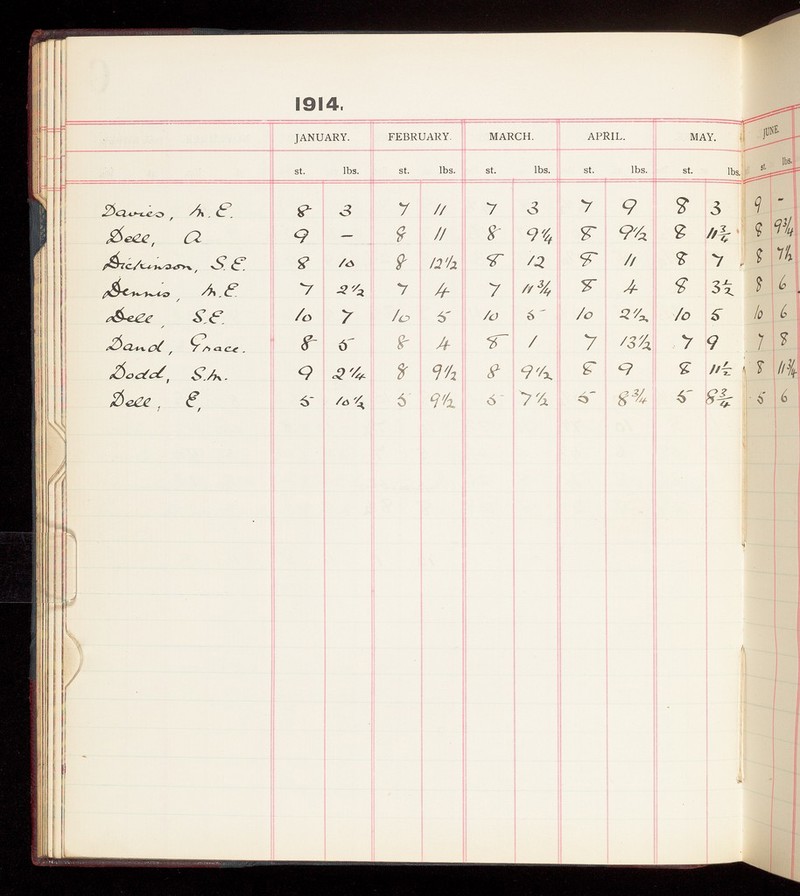 1914.
JANUARY. FEBRUARY. MARCH. APRIL. MAY. JUNE.
st. lbs. st. lbs. st. lbs. st. lbs. st. lbs. st. lbs.
Davies, M.E. 8 3 7 11 7 3 7 9 8 3 9 -
Dell, A 9 - 8 11 8 9¼ 8 9½ 8 11¾ 8 9¾
Dickinson, S.E. 8 10 8 12½ 8 12 8 11 8 7 8 7½
Dennis, M.E. 7 2½ 7 4 7 11¾ 8 4 8 3½ 8 6
Dell, S.E. 10 7 10 5 10 5 10 2½ 10 5 10 6
Dand, Grace. 8 5 8 4 8 1 7 13½ 7 9 7 8
Dodd, S.M. 9 2¼ 8 9½ 8 9½ 8 9 8 11½ 8 11¾
Dell, E, 5 10½ 5 9½ 5 7½ 5 8¾ 5 8¾ 5 6